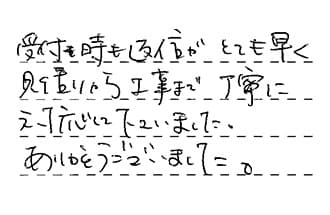 受付も時も返信がとても早く
見積りから工事まで丁寧に
対応して下さいました。
ありがとうございました。